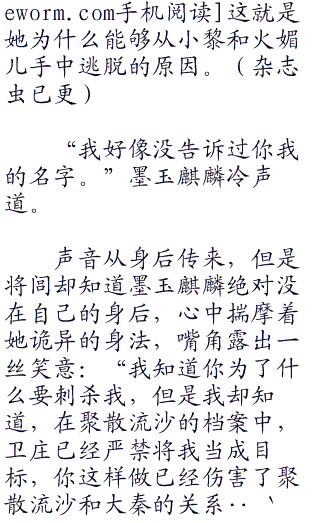 eworm.com手机阅读]这就是
她为什么能够从小黎和火媚
儿手中逃脱的原因。（杂志
虫已更）
“我好像没告诉过你我
的名字。”墨玉麒麟冷声
道。
声音从身后传来，但是
将闾却知道墨玉麒麟绝对没
在自己的身后，心中揣摩着
她诡异的身法，嘴角露出一
丝笑意：“我知道你为了什
么要刺杀我，但是我却知
道，在聚散流沙的档案中，
卫庄已经严禁将我当成目
标，你这样做已经伤害了聚
散流沙和大秦的关系‥〝